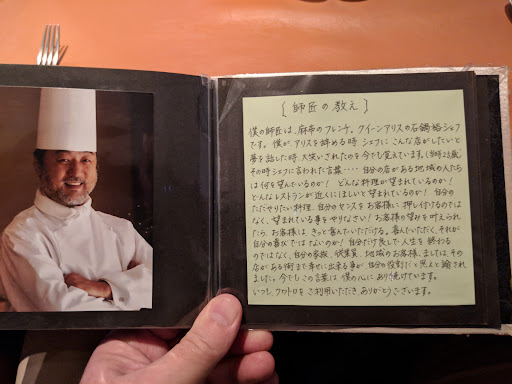 [師匠の教え]
僕の師匠は、麻布のフレンチ。クイーンアリスの石鍋裕シェフ
です。僕が、アリスを辞める時 シェフに こんな店がしたいと
夢を話した時 大笑いされたのを今でも覚えています。(当時23歳)
その時シェフに言われた言葉・・・・ 自分の店がある地域の人たち
は何を望んでいるのか! どんな料理が望まれているのか!
どんなレストランが近くにほしいと望まれているのか! 自分の
ただやりたい料理、自分のセンスをお客様に 押し付けるのでは
なく、望まれている事をやりなさい! お客様の望みを叶えられ
たら、お客様は、きっと喜んでいただける。喜んでいただく、それが
自分の喜びではないのか! 自分だけ良しで人生を終わる
のではなく、自分の家族、従業員、地域のお客様、ましては、その
店がある街まで幸せに出来る事が、自分の役割だと思えと諭され
ました。今でもこの言葉は、僕の心にあり続けています。
いつも クロトロを ご利用いただき、ありがとうございます。